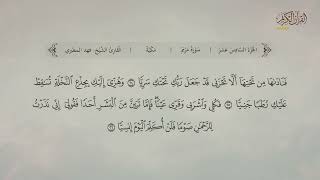 القرآن الكريم
الجزء السادس عشر | سورة مريم | مكية | القارئ الشيخ: فهد المطيري
فَنَادَىٰهَا مِن تَحْتِهَآ أَلَّا تَحْزَنِى قَدْ جَعَلَ رَبُّكِ تَحْتَكِ سَرِيًّا ۝٢٤ وَهُزِّىٓ إِلَيْكِ بِجِذْعِ ٱلنَّخْلَةِ تُسَٰقِطْ
عَلَيْكِ رُطَبًا جَنِيًّا ۝٢٥ فَكُلِى وَٱشْرَبِى وَقَرِّى عَيْنًا ۖ فَإِمَّا تَرَيِنَّ مِنَ ٱلْبَشَرِ أَحَدًا فَقُولِىٓ إِنِّى نَذَرْتُ
لِلرَّحْمَٰنِ صَوْمًا فَلَنْ أُكَلِّمَ ٱلْيَوْمَ إِنسِيًّا ۝٢٦